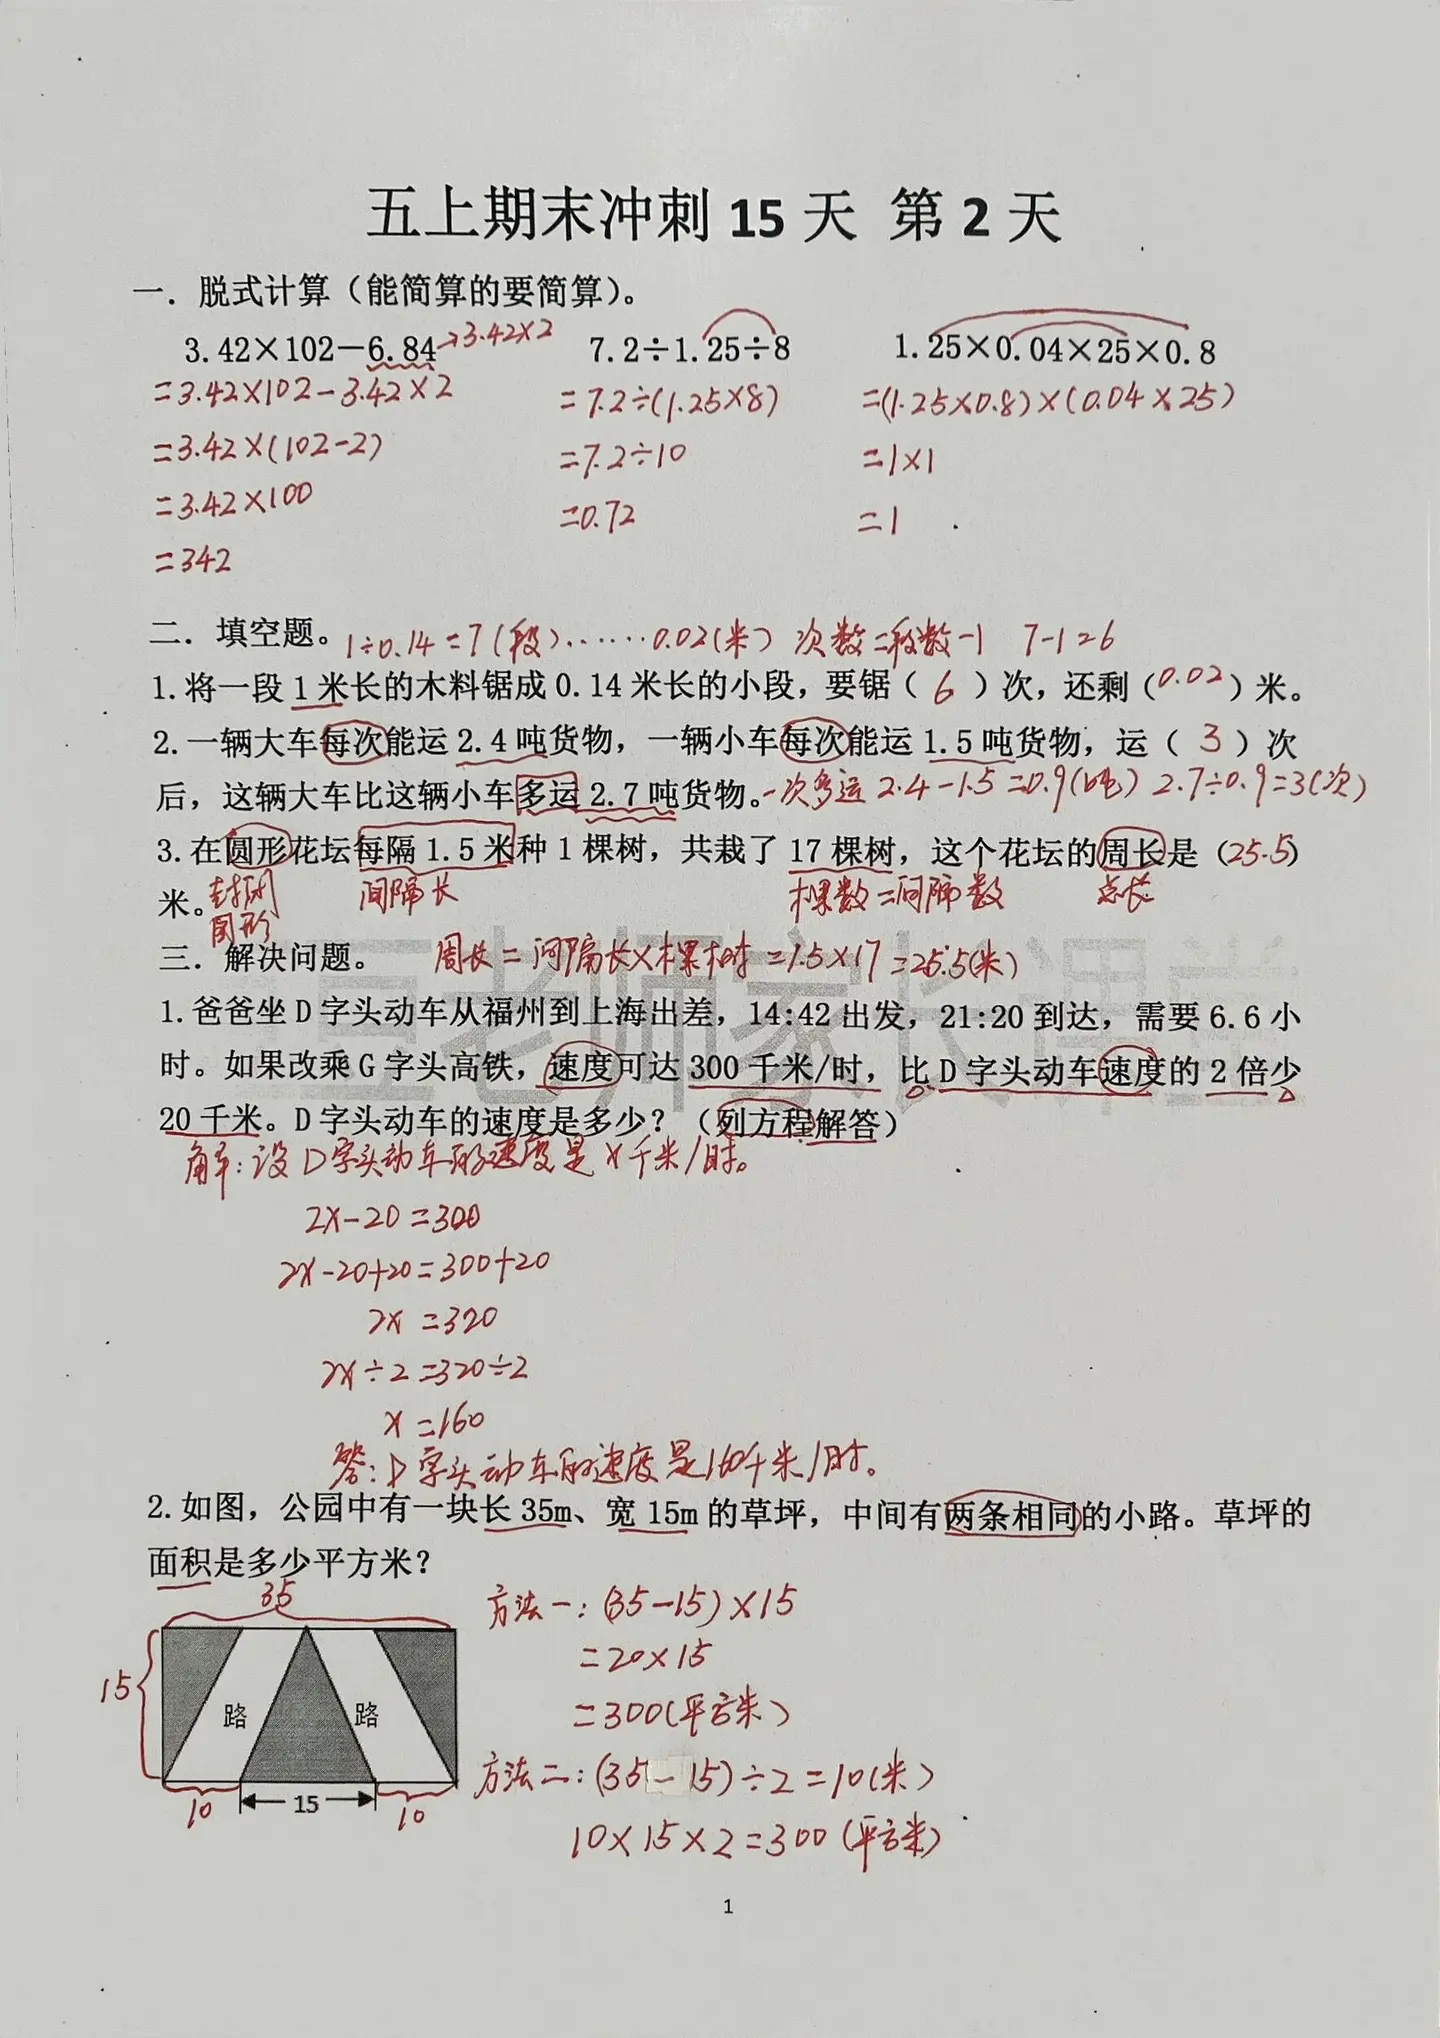 五上期末冲刺 15 天 第 2 天
一．脱式计算（能简算的要简算）。
3.42×102－6.84→3.42×2 7.2÷1.25÷8 1.25×0.04×25×0.8
=3.42×102-3.42×2 =7.2÷(1.25×8) =(1.25×0.8)×(0.04×25)
=3.42×(102-2) =7.2÷10 =1×1
=3.42×100 =0.72 =1
=342
二．填空题。1÷0.14=7(段)……0.02(米) 次数=段数-1 7-1=6
1.将一段 1 米长的木料锯成 0.14 米长的小段，要锯（ 6 ）次，还剩（0.02）米。
2.一辆大车每次能运 2.4 吨货物，一辆小车每次能运 1.5 吨货物，运（ 3 ）次
后，这辆大车比这辆小车多运 2.7 吨货物。一次多运 2.4-1.5=0.9(吨) 2.7÷0.9=3(次)
3.在圆形花坛每隔 1.5 米种 1 棵树，共栽了 17 棵树，这个花坛的周长是（25.5）
米。封闭图形 间隔长 棵数=间隔数 总长
三．解决问题。 周长=间隔长×棵树=1.5×17=25.5(米)
豆老师家长课堂
1.爸爸坐 D 字头动车从福州到上海出差，14:42 出发，21:20 到达，需要 6.6 小
时。如果改乘 G 字头高铁，速度可达 300 千米/时，比 D 字头动车速度的 2 倍少
20 千米。D 字头动车的速度是多少？（列方程解答）
解：设D字头动车的速度是x千米/时。
2x-20=300
2x-20+20=300+20
2x=320
2x÷2=320÷2
x=160
答：D字头动车的速度是160千米/时。
2.如图，公园中有一块长 35m、宽 15m 的草坪，中间有两条相同的小路。草坪的
面积是多少平方米？
35 方法一：(35-15)×15
=20×15
15 路 路 =300(平方米)
方法二：(35-15)÷2=10(米)
10 15 10
10×15×2=300(平方米)
1